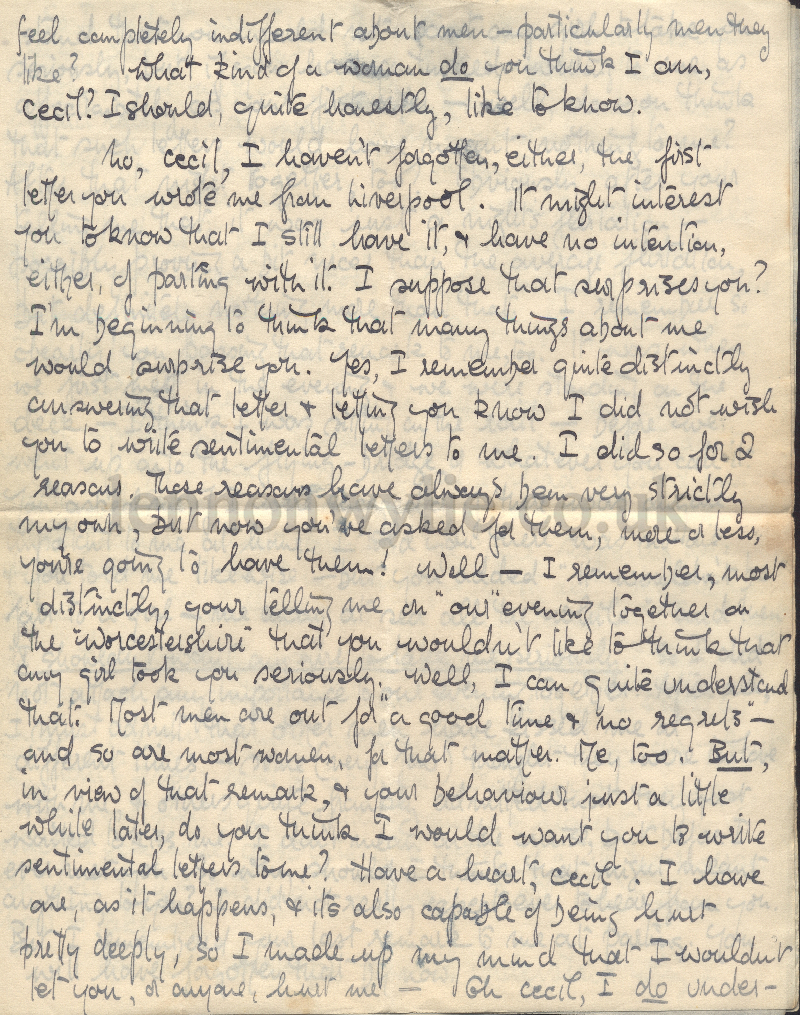 feel completely indifferent about men – particularly men they
like? What kind of a woman do you think I am,
Cecil? I should, quite honestly, like to know.
No, Cecil, I haven't forgotten, either, the first
letter you wrote me from Liverpool. It might interest
you to know that I still have it, & have no intention,
either, of parting with it. I suppose that surprises you?
I'm beginning to think that many things about me
would surprise you. Yes, I remember quite distinctly
answering that letter & letting you know I did not wish
you to write sentimental letters to me. I did so for 2
reasons. Those reasons have always been very strictly
my own, but now you've asked for them, more or less,
you're going to have them! Well — I remember, most
distinctly, your telling me on "our" evening together on
the "Worcestershire" that you wouldn't like to think that
any girl took you seriously. Well, I can quite understand
that. Most men are out for "a good time & no regrets" –
and so are most women, for that matter. Me, too. But,
in view of that remark, & your behaviour just a little
while later, do you think I would want you to write
sentimental letters to me? Have a heart, Cecil. I have
one, as it happens, & its also capable of being hurt
pretty deeply, so I made up my mind that I wouldn't
let you, or anyone, hurt me — Oh Cecil, I do under-
lennonwylie.co.uk